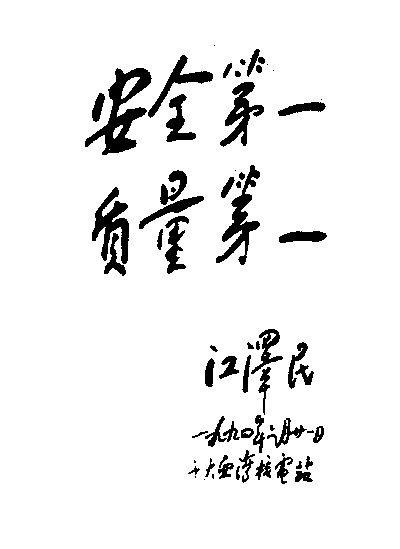 安全第一
质量第一
江澤民
一九九〇年六月廿一日
于大亚湾核電站